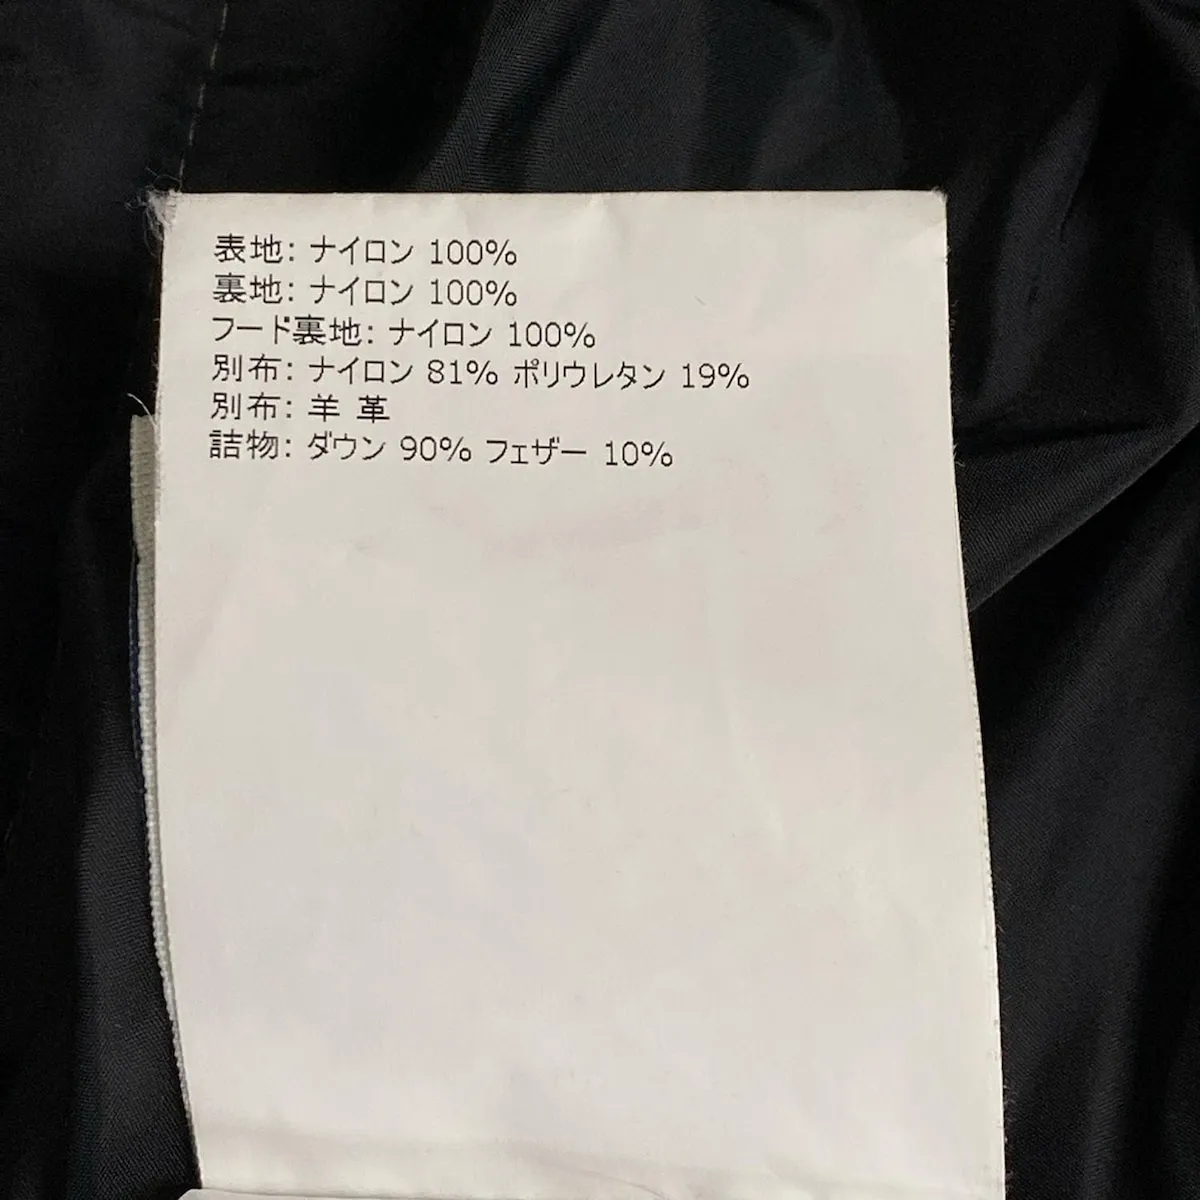 表地: ナイロン 100%
裏地: ナイロン 100%
フード裏地: ナイロン 100%
別布: ナイロン 81% ポリウレタン 19%
別布: 羊 革
詰物: ダウン 90% フェザー 10%